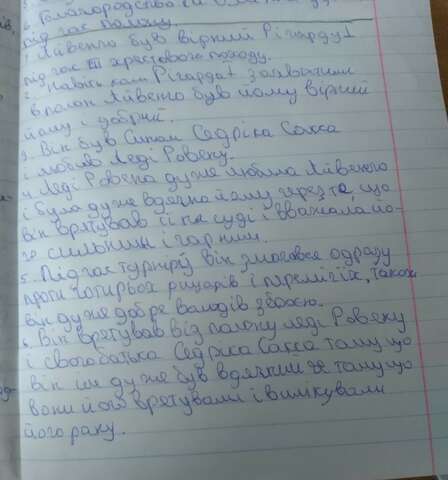 6. Благородство
під час полону.
1. Айвенго був вірний Річарду I
під час III хрестового походу.
2. Навіть коли Річарда I захватили
в полон Айвенго був йому вірний
йому і добрий.
3. Він був Сином Седріка Сакса
і любив Леді Ровену.
4 Леді Ровена дуже любила Айвенго
і була дуже вдячна йому через те, що
він врятував її на суді і вважала йо-
го сильним і гарним.
5. Під час турніру він змагався одразу
проти чотирьох рицарів і переміг їх, також
він дуже добре володів зброєю.
6. Він врятував від полону леді Ровену
і свого батька Седріка Сакса тому що
він їм дуже був вдячний за тому що
вони його врятували і вилікували
його рану.